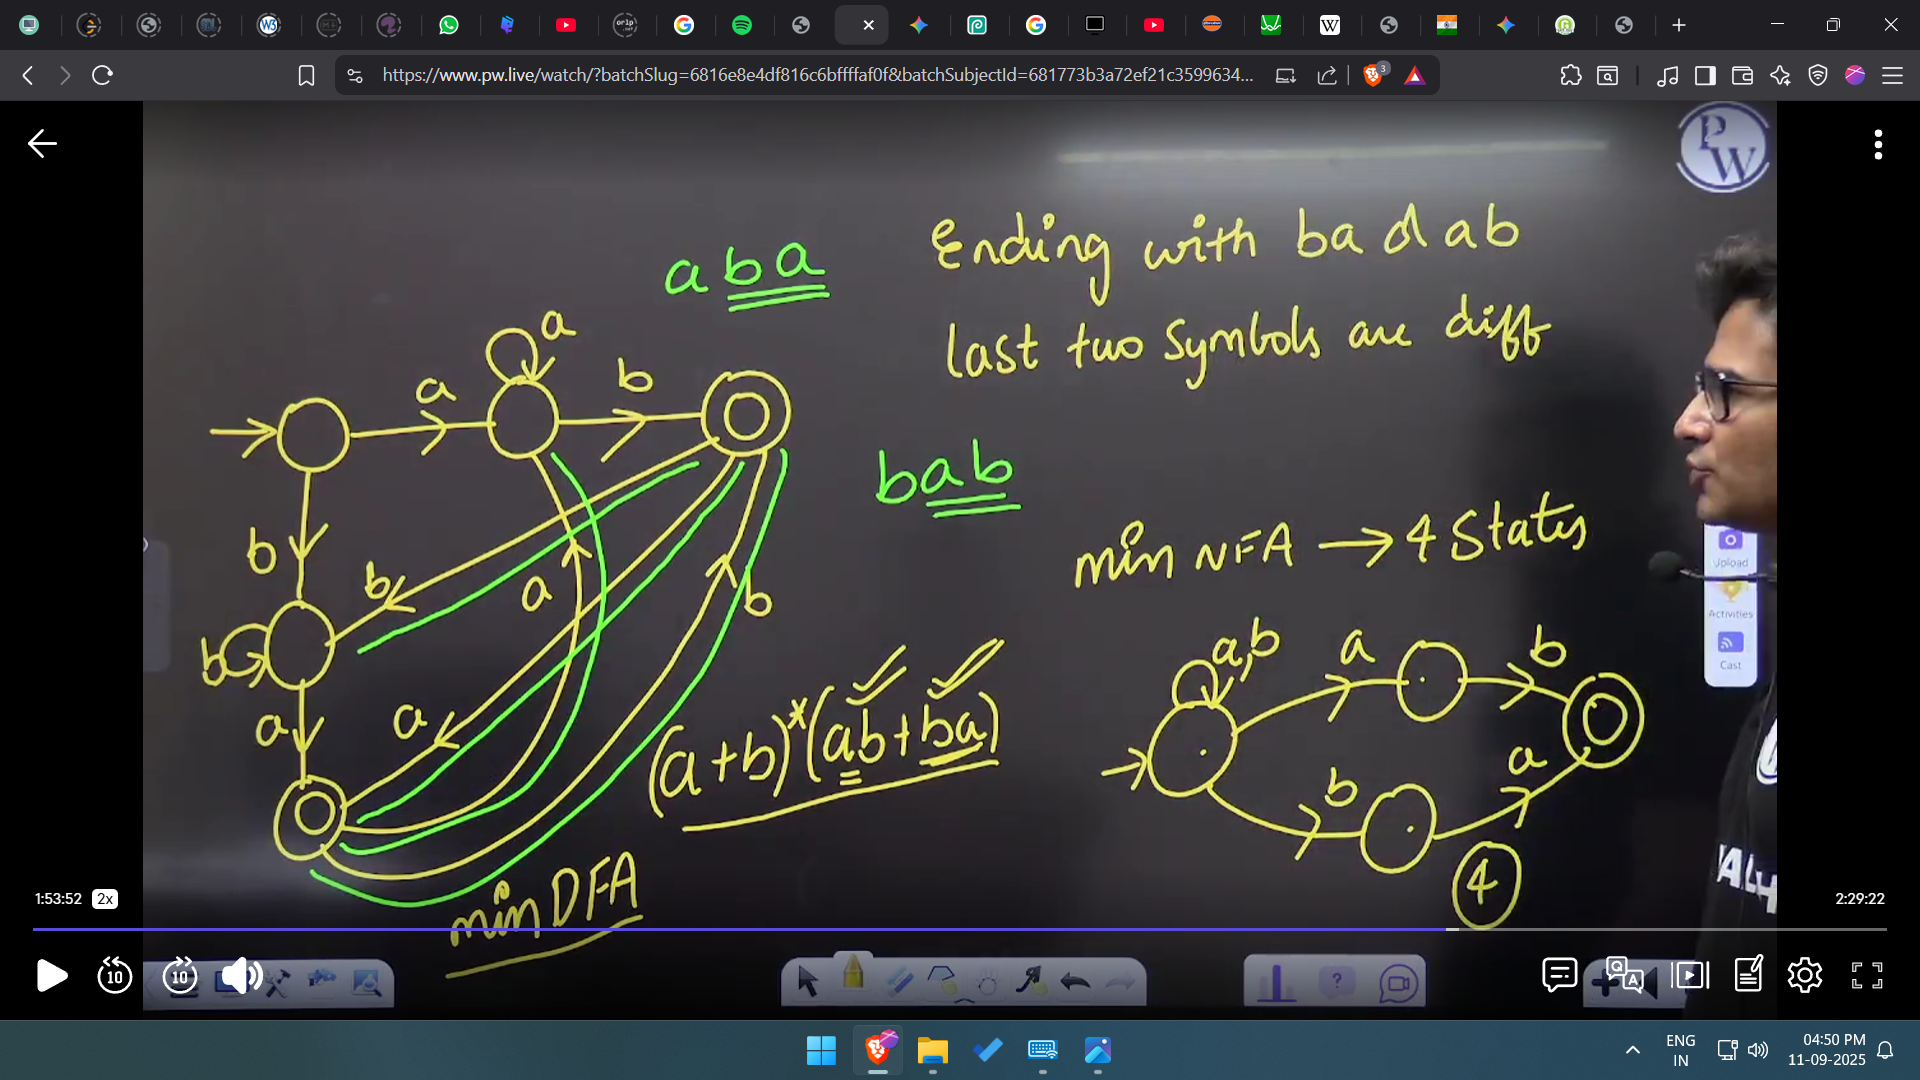 https://www.pw.live/watch/?batchSlug=6816e8e4df816c6bffffaf0f&batchSubjectId=681773b3a72ef21c3599634...
3
PW
aba
Ending with ba or ab
last two symbols are diff
a
a
b
bab
min NFA → 4 States
b
b
a
b
b
a
a
(a+b)*(ab+ba)
a,b
a
b
b
a
4
min DFA
Upload
Activities
Cast
1:53:52 2x
2:29:22
10
10
ENG
IN
04:50 PM
11-09-2025